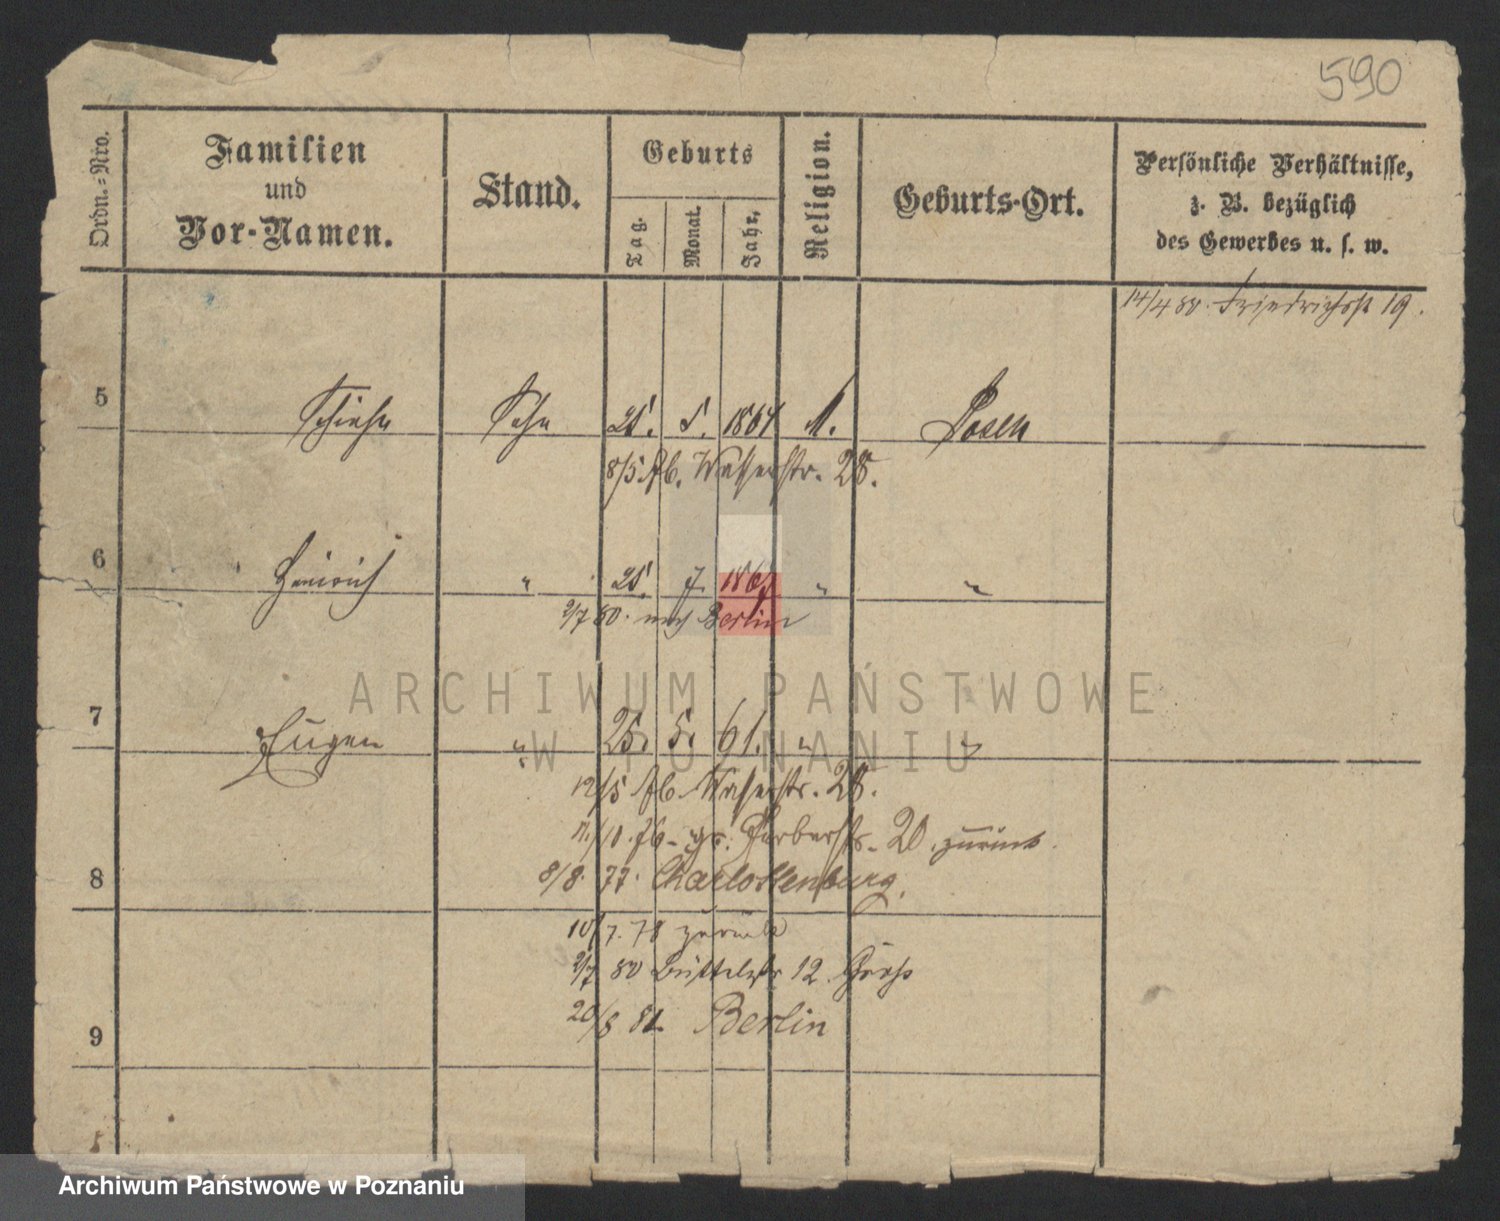 590
Ordn.-Nro.
Familien
und
Vor-Namen.
Stand.
Geburts
Tag.
Monat.
Jahr.
Religion.
Geburts-Ort.
Persönliche Verhältnisse,
z. B. bezüglich
des Gewerbes u. s. w.
14/4 80. Friedrichsst 19.
5 Sohn 25. 5. 1864 M. Posen
8/5 Wasserstr. 28.
6 Heinrich " 25. 7. " "
2/7 80. nach Berlin
7 Eugen " 25. 5. 61. " "
12/5 Wasserstr. 28.
11/10. gr. Gerberstr. 20. zurück.
8 8/8. 77. Charlottenburg.
10/7. 78 zurück
2/7 80 Büttelstr 12.
9 20/8 81. Berlin
ARCHIWUM PAŃSTWOWE
W POZNANIU
Archiwum Państwowe w Poznaniu